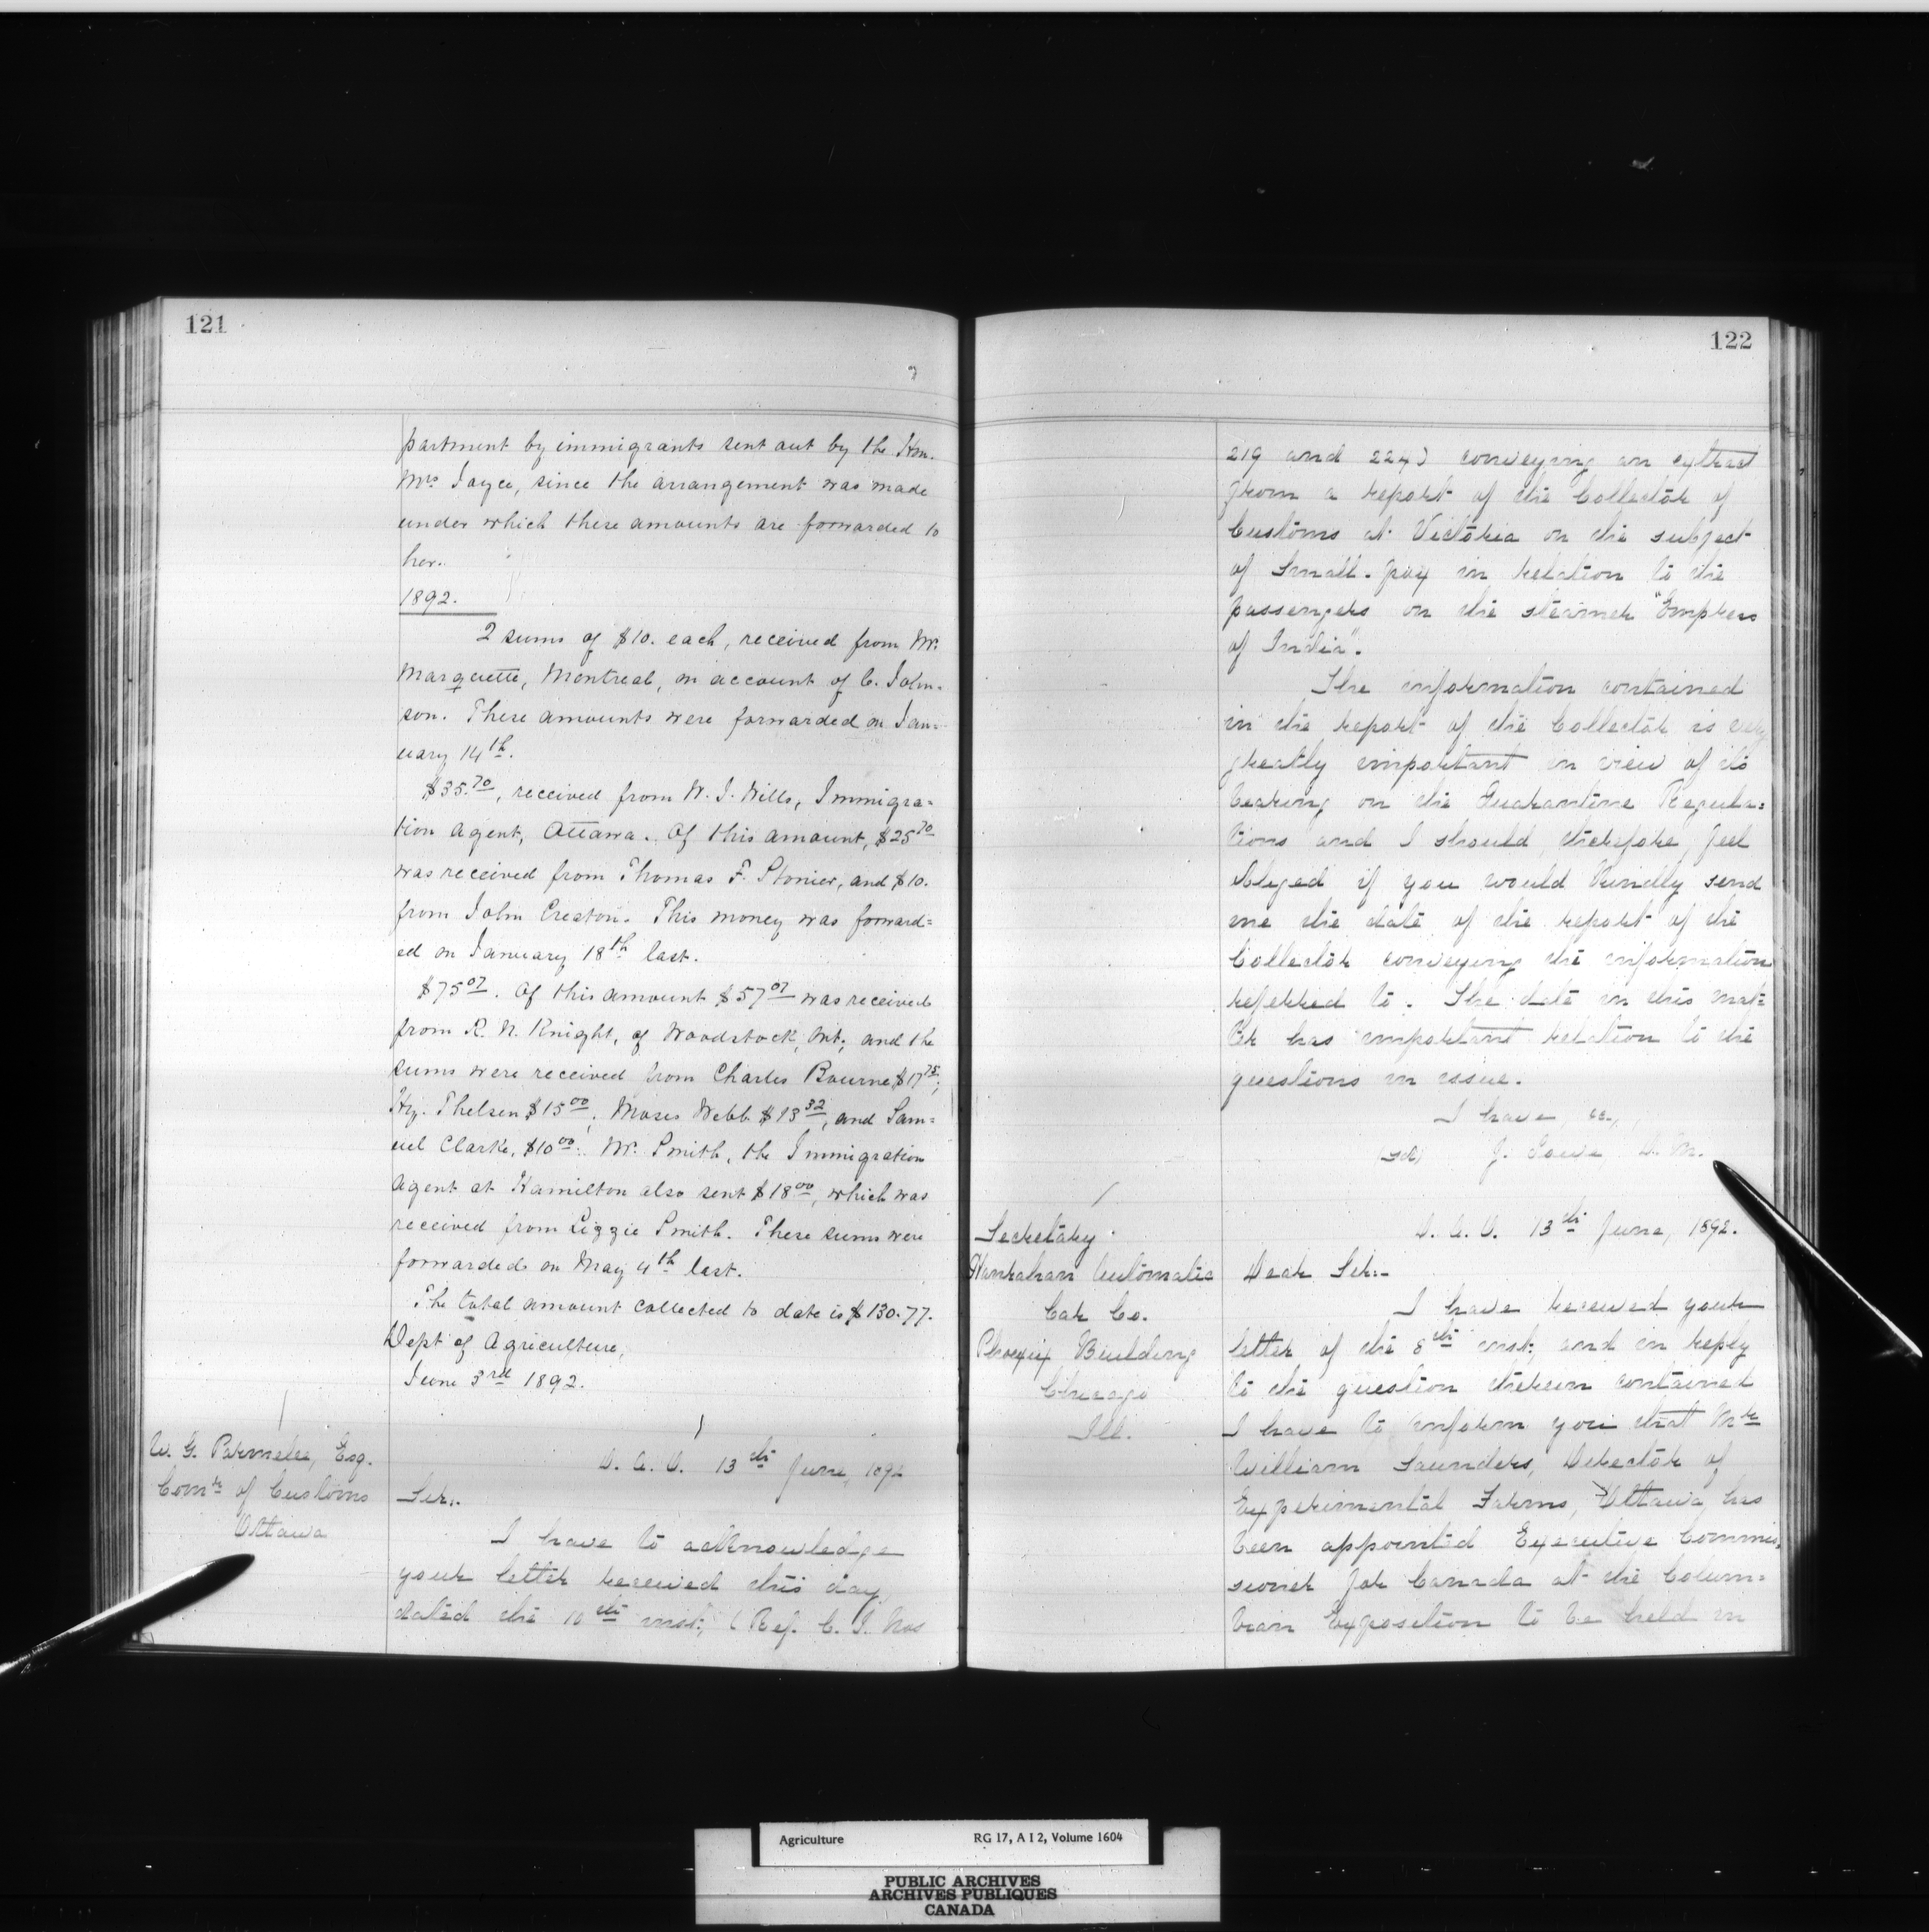 121
partment by immigrants sent out by the Hon.
Mrs Joyce, since the arrangement was made
under which these amounts are forwarded to
her.
1892.
2 sums of $10. each, received from Mr.
Marquette, Montreal, on account of C. John-
son. These amounts were forwarded on Jan-
uary 14th.
$35.70, received from W. J. Wills, Immigra=
tion Agent, Ottawa. Of this amount, $25 70
was received from Thomas F. Stonier, and $10.
from John Creaton. This money was forward=
ed on January 18th last.
$75 07. Of this amount $57 07 was received
from R. N. Knight, of Woodstock, Ont; and the
sums were received from Charles Bourne $17 75;
Hy. Thelsen $15 00; Moses Webb $13 32, and Sam=
uel Clarke, $10 00. Mr. Smith, the Immigration
Agent at Hamilton also sent $18 00, which was
received from Lizzie Smith. These sums were
forwarded on May 4th last.
The total amount collected to date is $130.77.
Dept of Agriculture,
June 3rd 1892.
W. G. Parmelee, Esq.
Comr of Customs
Ottawa
D. A. O. 13th June, 1892
Sir:-
I have to acknowledge
your letter received this day
dated the 10th inst; (Ref. C. I. Nos
122
219 and 224) conveying an extract
from a report of the Collector of
Customs at Victoria on the subject
of Small-pox in relation to the
passengers on the steamer "Empress
of India".
The information contained
in the report of the Collector is very
greatly important in view of its
bearing on the Quarantine Regula=
tions and I should, therefore, feel
obliged if you would kindly send
me the date of the report of the
Collector conveying the information
referred to. The date in this mat=
ter has important relation to the
questions in issue.
I have, &c.,
sd, J. Lowe D. M.
Secretary
Hanrahan Automatic
Car Co.
Phoenix Building
Chicago
Ill.
D. A. O. 13th June, 1892.
Dear Sir:-
I have received your
letter of the 8th inst; and in reply
to the question therein contained
I have to inform you that Mr
William Saunders, Director of
Experimental Farms, Ottawa, has
been appointed Executive Commis,
sioner for Canada at the Colum=
bian Exposition to be held in
Agriculture RG 17, A I 2, Volume 1604
PUBLIC ARCHIVES
ARCHIVES PUBLIQUES
CANADA